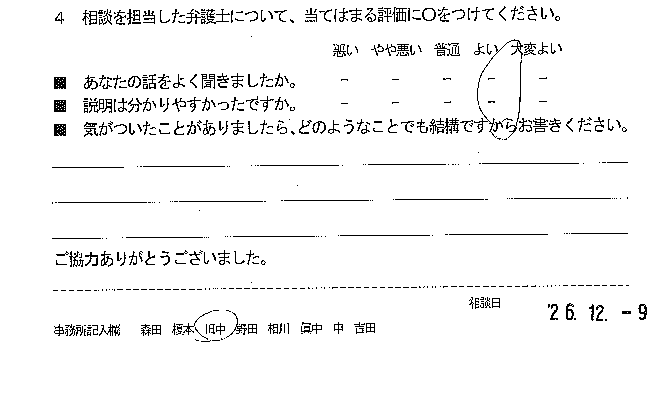 4 相談を担当した弁護士について、当てはまる評価に○をつけてください。
悪い やや悪い 普通 よい 大変よい
■ あなたの話をよく聞きましたか。 - - - - -
■ 説明は分かりやすかったですか。 - - - - -
■ 気がついたことがありましたら、どのようなことでも結構ですからお書きください。
ご協力ありがとうございました。
相談日 '26.12.-9
事務所記入欄 森田 榎本 田中 野田 相川 眞中 中 吉田